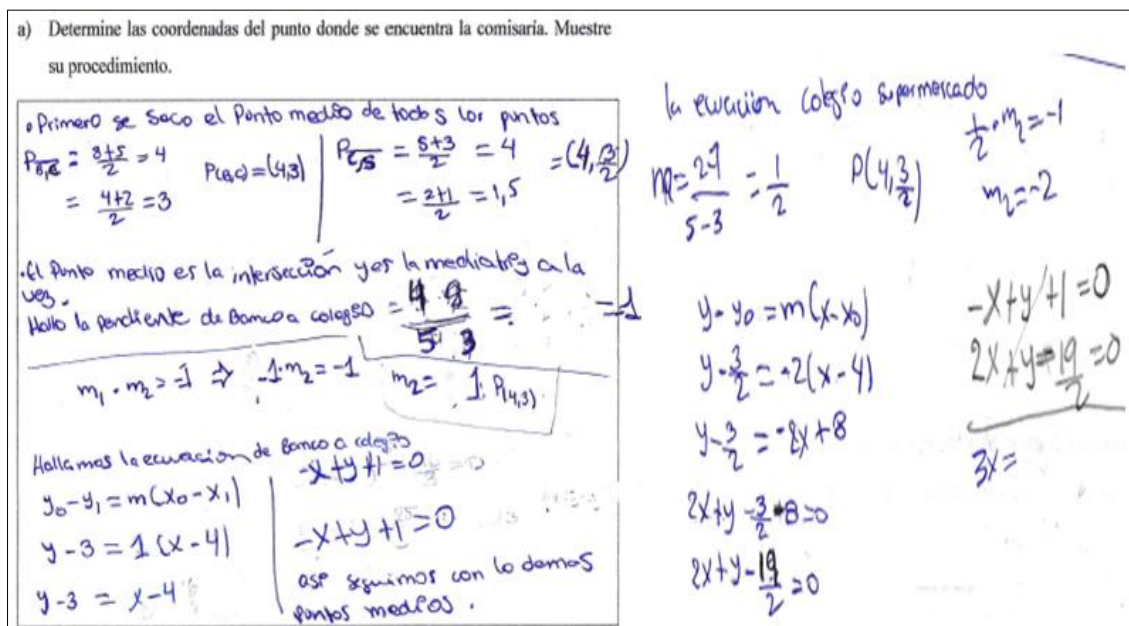 a) Determine las coordenadas del punto donde se encuentra la comisaría. Muestre
su procedimiento.
• Primero se saco el Punto medio de todos los puntos
P = 3+5/2 = 4
= 4+2/2 = 3
P(B,C) = (4,3)
P C,S = 5+3/2 = 4 = (4, 3/2)
= 2+1/2 = 1,5
• El Punto medio es la intersección y es la mediatriz a la
vez.
Hallo la pendiente de Banco a colegio = = -1
m₁ · m₂ = -1 ⇒ -1·m₂ = -1 m₂ = 1; P(4,3)
Hallamos la ecuacion de Banco a colegio
y₀ - y₁ = m(x₀ - x₁)
y - 3 = 1(x - 4)
y - 3 = x - 4
-x + y + 1 = 0
-x + y + 1 = 0
asi seguimos con lo demas
puntos medios.
la ecuación colegio supermercado
m = 2-1/5-3 = 1/2 P(4, 3/2)
1/2 · m₂ = -1
m₂ = -2
y - y₀ = m(x - x₀)
y - 3/2 = -2(x - 4)
y - 3/2 = -2x + 8
2x + y - 3/2 - 8 = 0
2x + y - 19/2 = 0
-x + y + 1 = 0
2x + y - 19/2 = 0
3x =